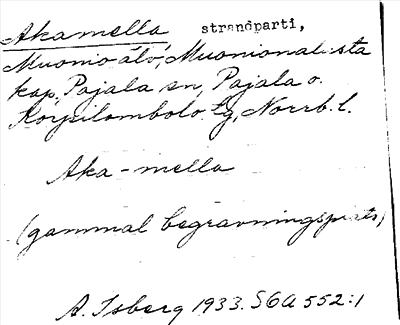 Akamella strandparti,
Muonio älv, Muonionalusta
kap. Pajala sn, Pajala o.
Korpilombolo tg, Norrb. l.
Aka-mella
(gammal begravningsplats)
A. Isberg 1933. SGA 552:1